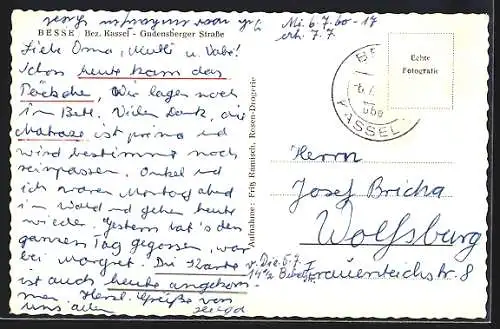 Mi. 6.7.60-17
erh. 7.7.
BESSE Bez. Kassel - Gudensberger Straße
Liebe Oma, Mutti u. Vati!
Schon heute kam das
Päckchen, Wir lagen noch
im Bett. Vielen Dank, die
Matraze ist prima und
wird bestimmt noch
reinpassen. Onkel und
ich waren Montag abend
im Wald und gehen heute
wieder. Gestern hat's den
ganzen Tag gegossen, war
bei Margret. Die Karte
ist auch heute angekom-
men. Herzl. Grüße von
uns allen
Aufnahme: Fritz Rennisch, Rosen-Drogerie
KASSEL
Echte
Fotografie
Herrn
Josef Bricha
Wolfsburg
Frauenteichstr. 8
v. Die. 5.7.